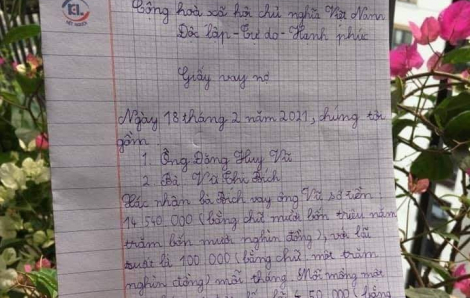 KL
Cộng hoà xã hội chủ nghĩa Việt Nam
Độc lập - Tự do - Hạnh phúc
Giấy vay nợ
Ngày 18 tháng 2 năm 2021, chúng tôi
gồm
1 Ông Đặng Huy Vũ
2. Bà Vũ Thị Bích
Xác nhận bà Bích vay ông Vũ số tiền
14.540.000 (bằng chữ mười bốn triệu năm
trăm bốn mươi nghìn đồng), với lãi
suất là 100.000 (bằng chữ một trăm
nghìn đồng) mỗi tháng. Mỗi mồng một
450.000 (bằng